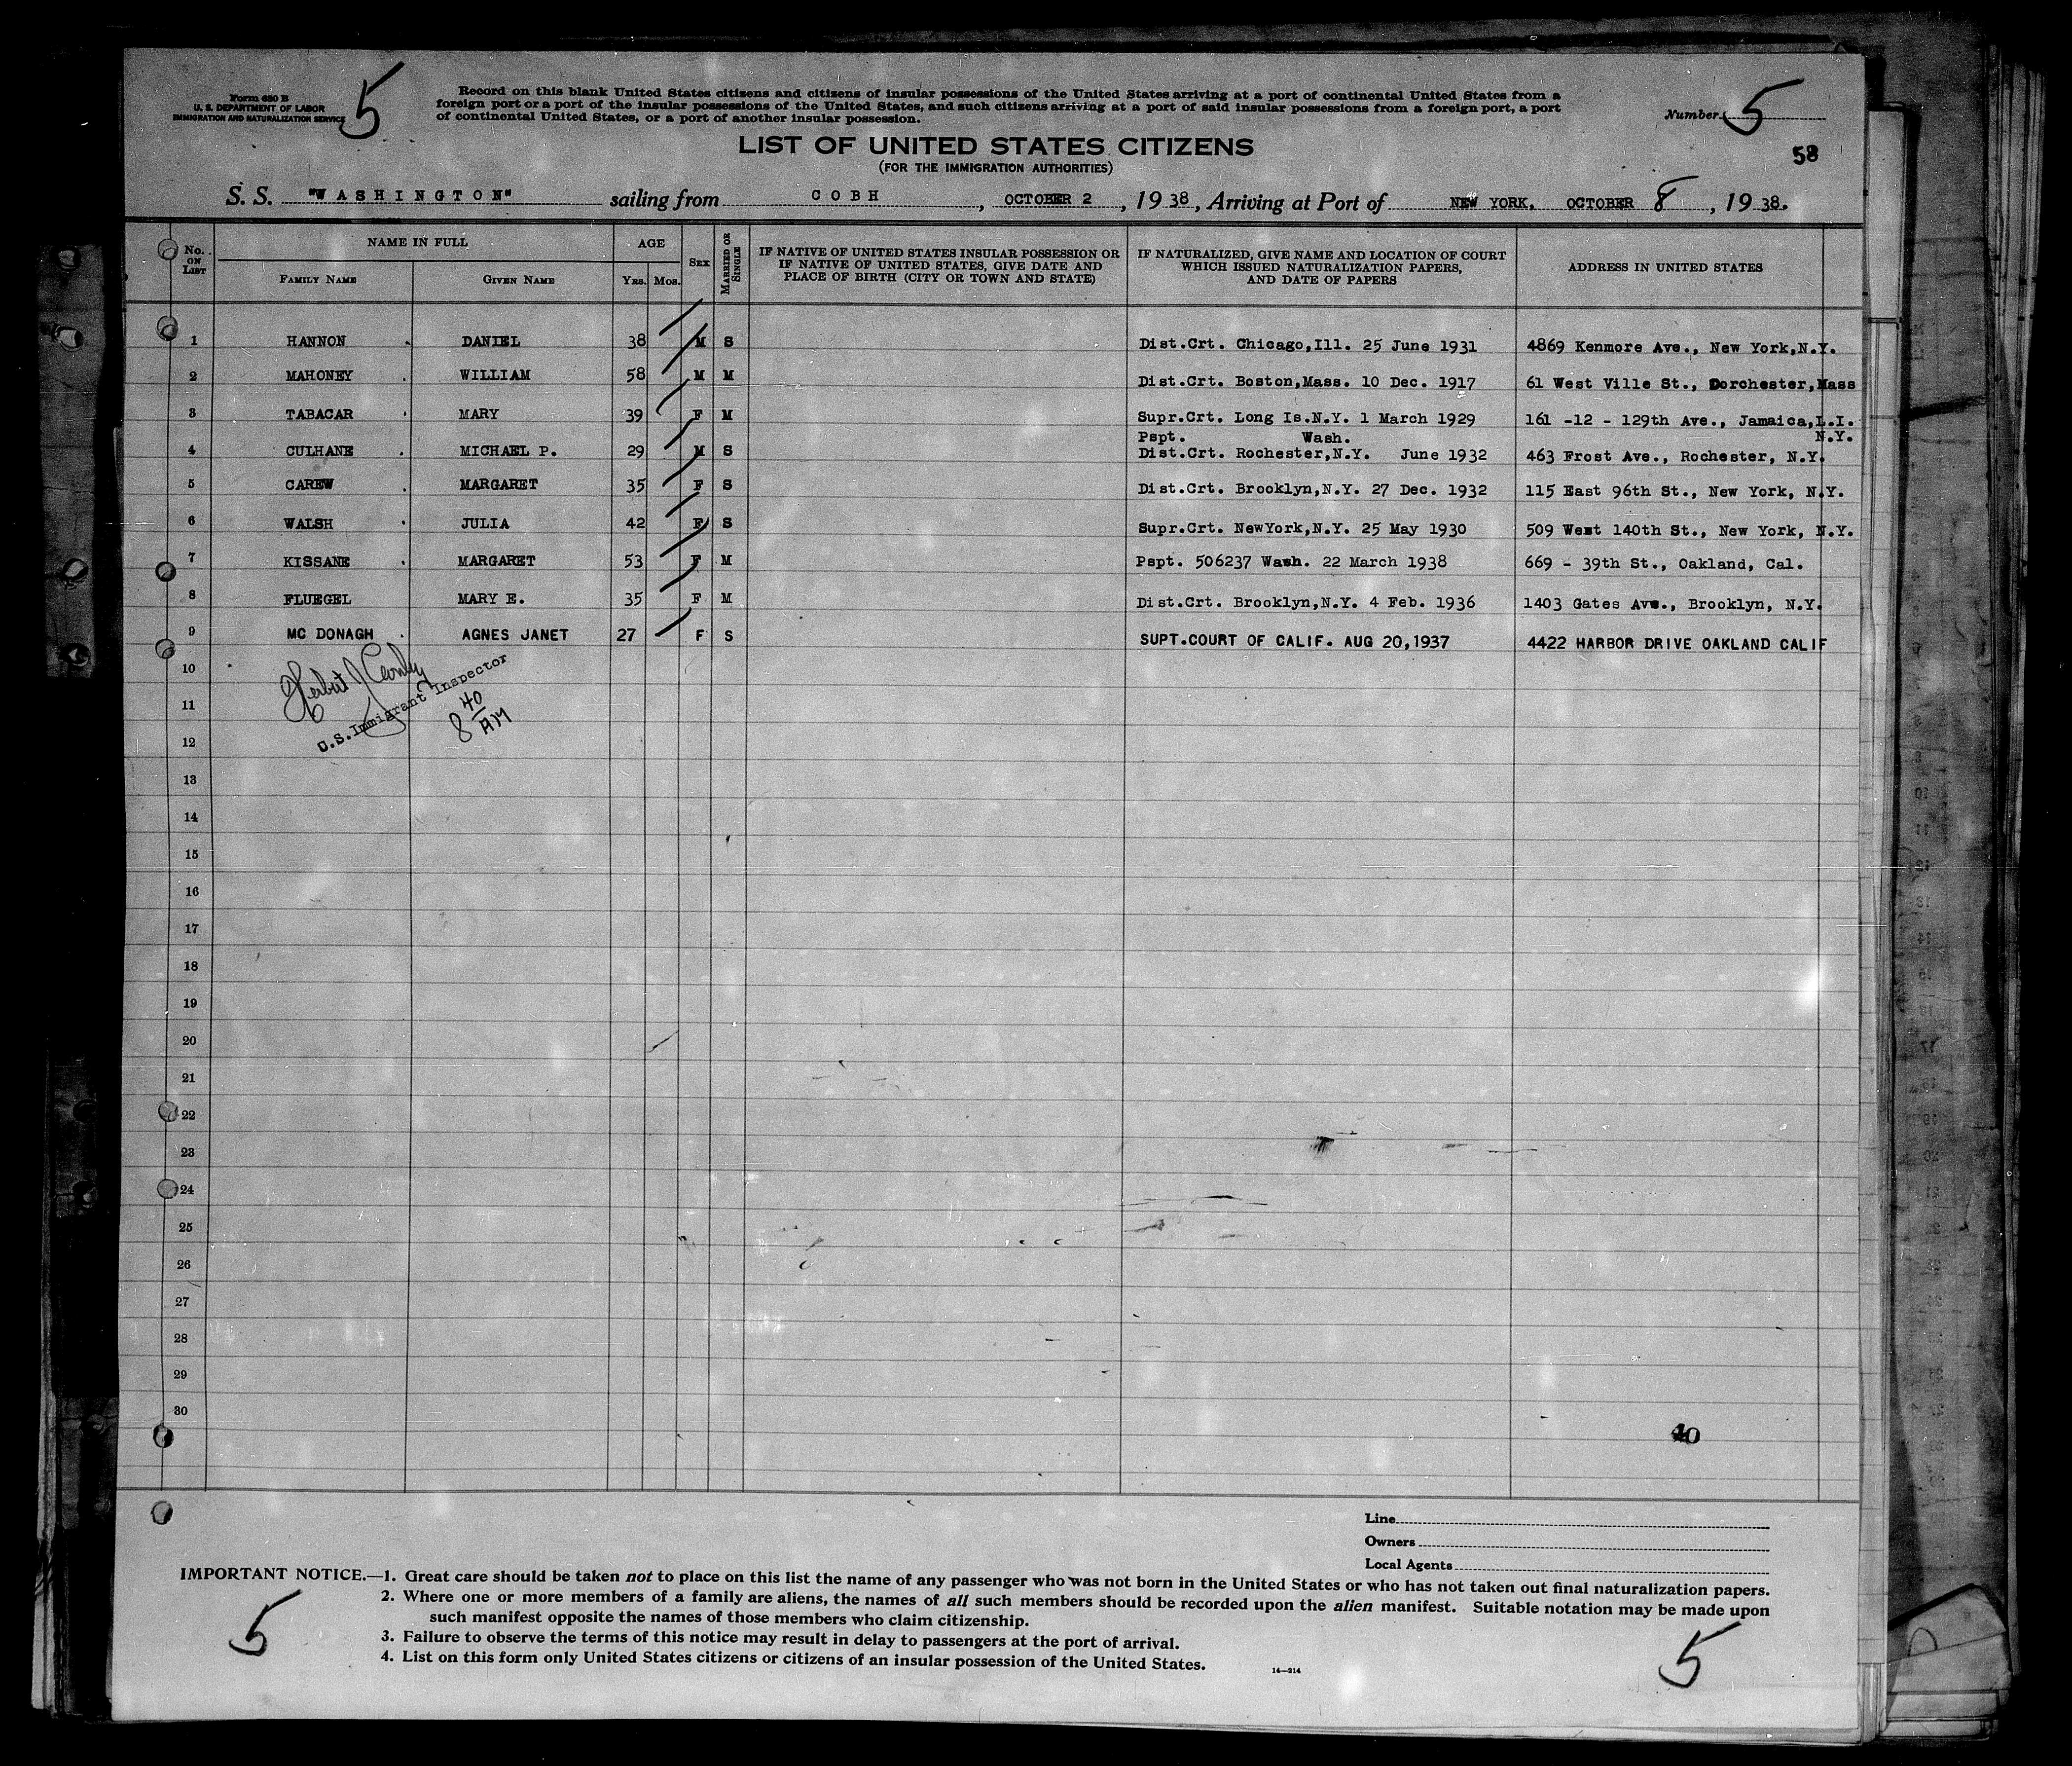 Form 630 B
U. S. DEPARTMENT OF LABOR
IMMIGRATION AND NATURALIZATION SERVICE
5
Record on this blank United States citizens and citizens of insular possessions of the United States arriving at a port of continental United States from a
foreign port or a port of the insular possessions of the United States, and such citizens arriving at a port of said insular possessions from a foreign port, a port
of continental United States, or a port of another insular possession.
Number 5
58
LIST OF UNITED STATES CITIZENS
(FOR THE IMMIGRATION AUTHORITIES)
S. S. "WASHINGTON" sailing from COBH, OCTOBER 2, 1938, Arriving at Port of NEW YORK, OCTOBER 8, 1938.
No. ON LIST NAME IN FULL FAMILY NAME GIVEN NAME AGE YRS. MOS. SEX MARRIED OR SINGLE IF NATIVE OF UNITED STATES INSULAR POSSESSION OR IF NATIVE OF UNITED STATES, GIVE DATE AND PLACE OF BIRTH (CITY OR TOWN AND STATE) IF NATURALIZED, GIVE NAME AND LOCATION OF COURT WHICH ISSUED NATURALIZATION PAPERS, AND DATE OF PAPERS ADDRESS IN UNITED STATES
1 HANNON DANIEL 38 M S Dist.Crt. Chicago,Ill. 25 June 1931 4869 Kenmore Ave., New York,N.Y.
2 MAHONEY WILLIAM 58 M M Dist.Crt. Boston,Mass. 10 Dec. 1917 61 West Ville St., Dorchester,Mass
3 TABACAR MARY 39 F M Supr.Crt. Long Is.N.Y. 1 March 1929 161 -12 - 129th Ave., Jamaica,L.I.
Pspt. Wash. N.Y.
4 CULHANE MICHAEL P. 29 M S Dist.Crt. Rochester,N.Y. June 1932 463 Frost Ave., Rochester, N.Y.
5 CAREW MARGARET 35 F S Dist.Crt. Brooklyn,N.Y. 27 Dec. 1932 115 East 96th St., New York, N.Y.
6 WALSH JULIA 42 F S Supr.Crt. NewYork,N.Y. 25 May 1930 509 West 140th St., New York, N.Y.
7 KISSANE MARGARET 53 F M Pspt. 506237 Wash. 22 March 1938 669 - 39th St., Oakland, Cal.
8 FLUEGEL MARY E. 35 F M Dist.Crt. Brooklyn,N.Y. 4 Feb. 1936 1403 Gates Ave., Brooklyn, N.Y.
9 MC DONAGH AGNES JANET 27 F S SUPT.COURT OF CALIF. AUG 20,1937 4422 HARBOR DRIVE OAKLAND CALIF
10
U.S. Immigrant Inspector
11
8 40 AM
12
13
14
15
16
17
18
19
20
21
22
23
24
25
26
27
28
29
30
Line
Owners
Local Agents
IMPORTANT NOTICE.—1. Great care should be taken not to place on this list the name of any passenger who was not born in the United States or who has not taken out final naturalization papers.
2. Where one or more members of a family are aliens, the names of all such members should be recorded upon the alien manifest. Suitable notation may be made upon
such manifest opposite the names of those members who claim citizenship.
3. Failure to observe the terms of this notice may result in delay to passengers at the port of arrival.
4. List on this form only United States citizens or citizens of an insular possession of the United States.
14—214
5
5